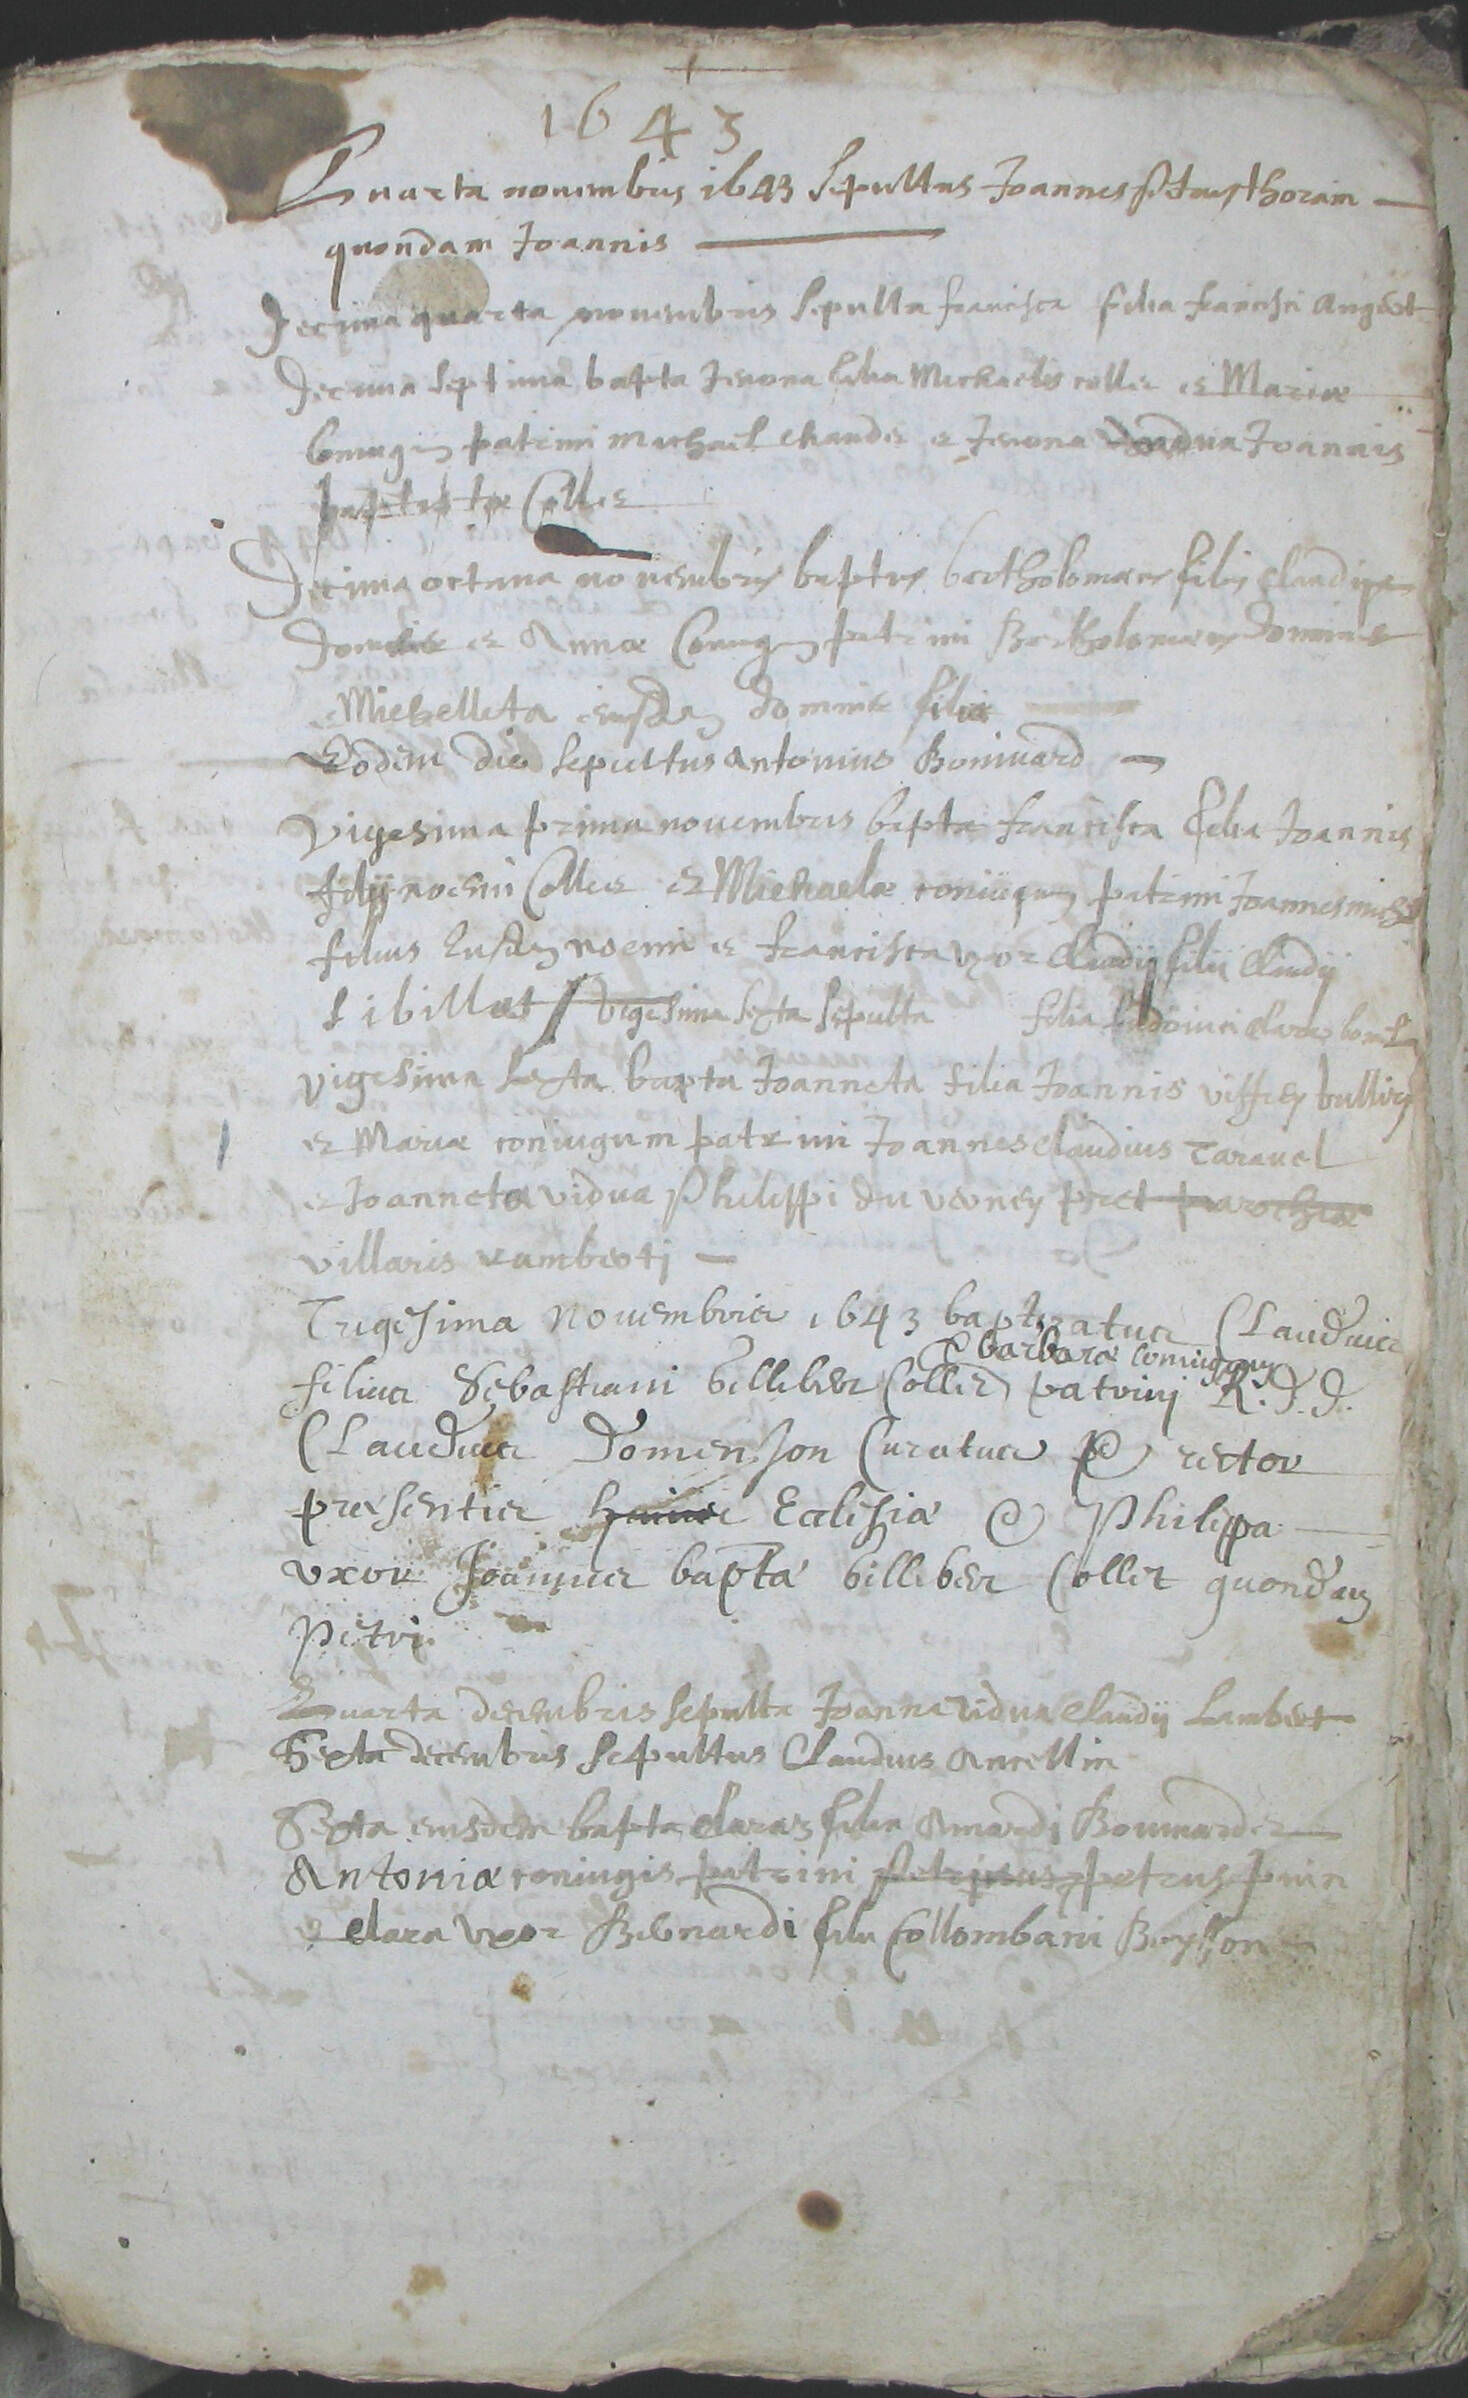 1643
Quarta novembris 1643 sepultus Joannes
quondam Joannis
Decima quarta novembris sepulta francisca filia francisci
Decima septima bapta Jenona filia Michaelis collet et Mariæ
Coniugum patrini michael chaudet et Jenona vidua Joannis
baptistæ Collet
Decima octava novembris baptus bartholomaeus filius claudii
et Annæ Coniugum patrini Bartholomaeus
et Michelleta eiusdem filia
Eodem die sepultus Antonius Bonivard
Vigesima prima novembris bapta francisca filia Joannis
filij noemi Collet et Michaelæ coniugum patrini Joannes
filius eiusdem noemi et francisca uxor Claudij filii Claudij
Sibillat vigesima sexta sepulta filia
Vigesima sexta bapta Joanneta filia Joannis viffrey
et Mariæ coniugum patrini Joannes claudius Taravel
et Joanneta vidua Philippi du verney parochiæ
villaris ramberti
Trigesima Novembris 1643 baptizatus Claudius
& barbaræ coniugum
filius Sebastiani billiber Collet patrini R. D. D.
Claudius Domenson Curatus & rector
presentis Ecclesiæ & Philippa
uxor Joannis bapta billiber Collet quondam
Petri
Quarta decembris sepulta Joanna vidua Claudij Lambert
Sexta decembris sepultus Claudius Ancellin
Sexta eiusdem bapta clara filia Amardi Bonivard et
Antoniæ coniugis patrini petrus
et clara uxor Bernardi filii Collombani